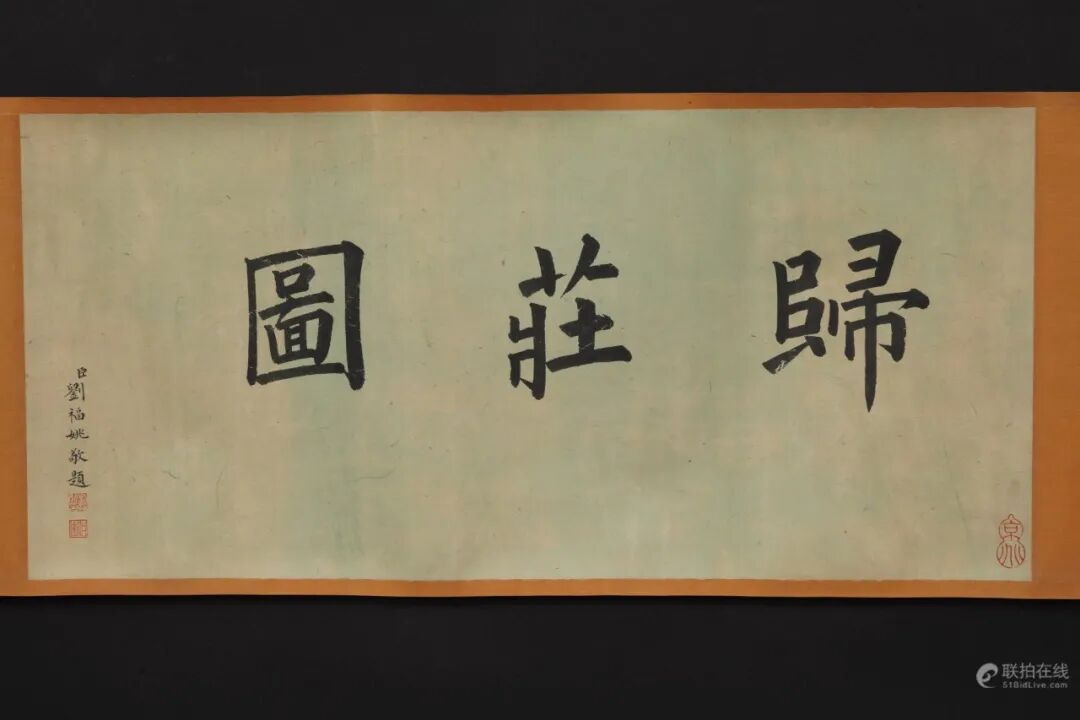 歸莊圖
臣劉福姚敬題
联拍在线
51BidLive.com